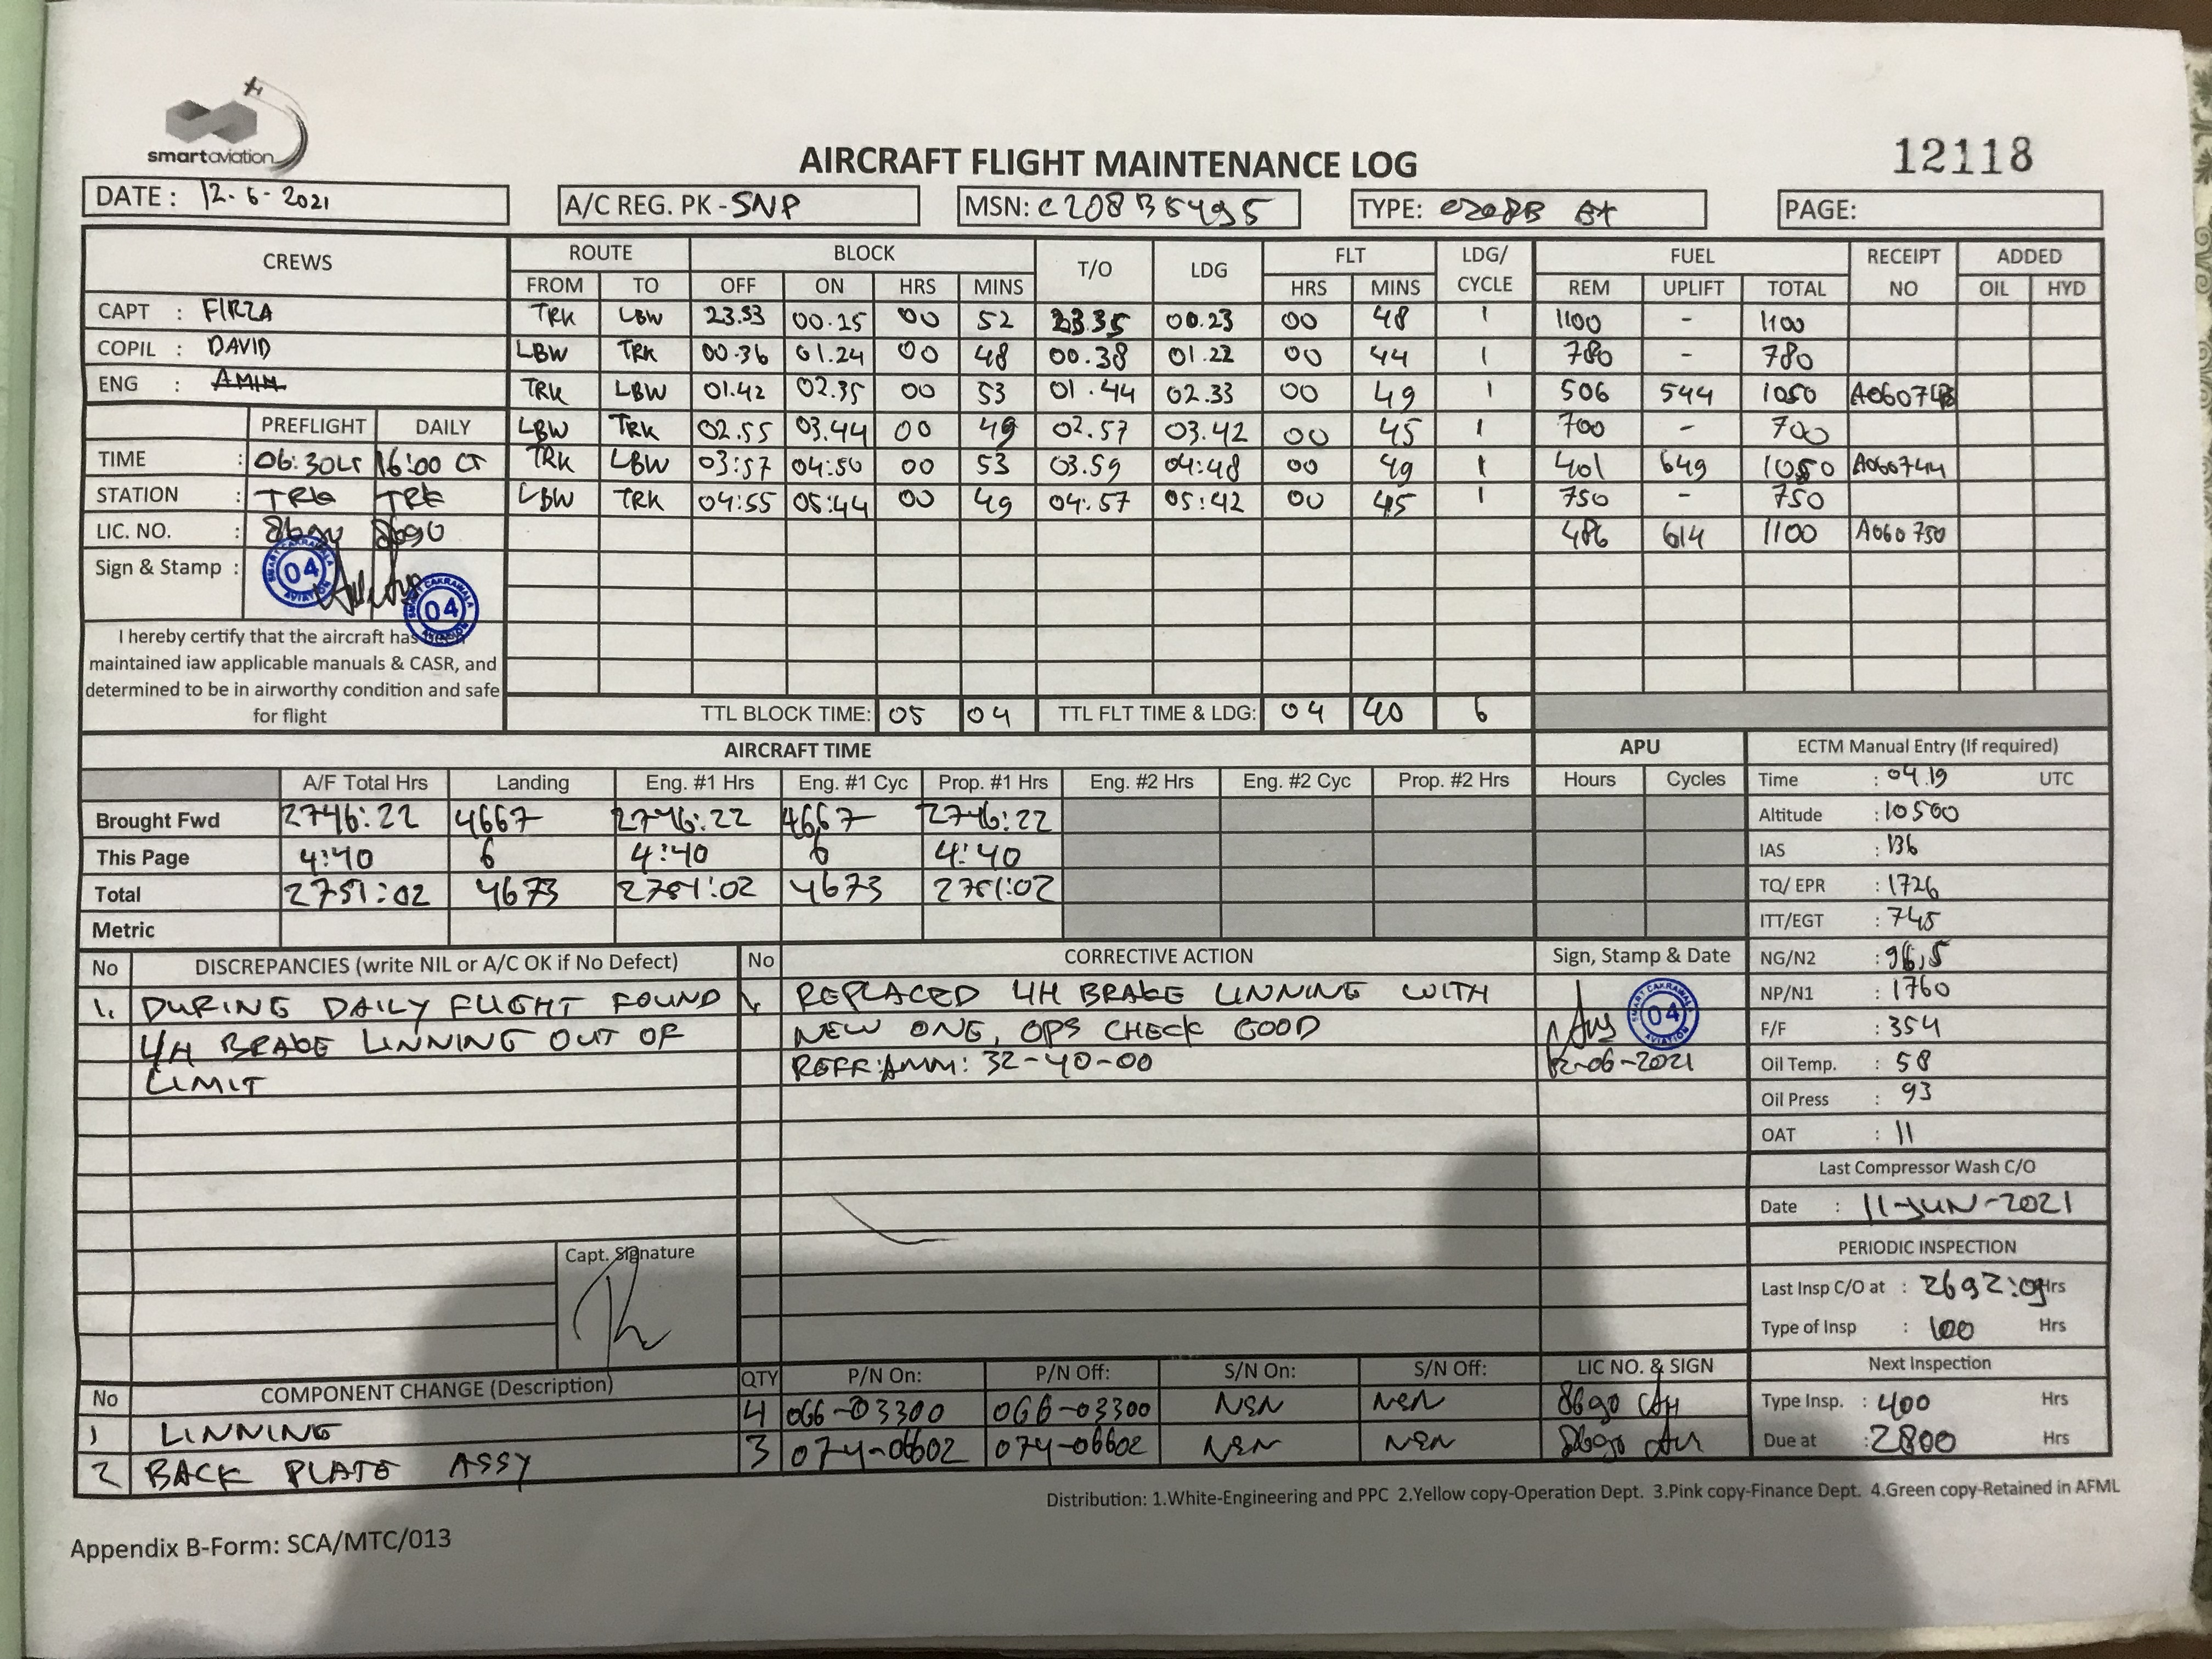 smartaviation
AIRCRAFT FLIGHT MAINTENANCE LOG
12118
DATE : 12-6-2021 A/C REG. PK - SNP MSN: C208B5495 TYPE: C208B EX PAGE:
CREWS ROUTE BLOCK T/O LDG FLT LDG/ CYCLE FUEL RECEIPT NO ADDED
FROM TO OFF ON HRS MINS HRS MINS REM UPLIFT TOTAL OIL HYD
CAPT : FIRZA TRK LBW 23.33 00.25 00 52 23.35 00.23 00 48 1 1100 - 1100
COPIL : DAVID LBW TRK 00.36 01.24 00 48 00.38 01.22 00 44 1 780 - 780
ENG : AMIN TRK LBW 01.42 02.35 00 53 01.44 02.33 00 49 1 506 544 1050
PREFLIGHT DAILY LBW TRK 02.55 03.44 00 49 02.57 03.42 00 45 1 700 - 700
TIME : 06:30LT 16:00 LT TRK LBW 03:57 04:50 00 53 03.59 04:48 00 49 1 401 649 1050 A060744
STATION : TRK TRK LBW TRK 04:55 05:44 00 49 04:57 05:42 00 45 1 750 - 750
LIC. NO. : 8690 8690 486 614 1100 A060750
Sign & Stamp :
SMART CAKRAWALA AVIATION 04
SMART CAKRAWALA AVIATION 04
I hereby certify that the aircraft has been
maintained iaw applicable manuals & CASR, and
determined to be in airworthy condition and safe
for flight
TTL BLOCK TIME: 05 04 TTL FLT TIME & LDG: 04 40 6
AIRCRAFT TIME APU ECTM Manual Entry (If required)
A/F Total Hrs Landing Eng. #1 Hrs Eng. #1 Cyc Prop. #1 Hrs Eng. #2 Hrs Eng. #2 Cyc Prop. #2 Hrs Hours Cycles
Brought Fwd 2746:22 4667 2746:22 4667 2746:22
This Page 4:40 6 4:40 6 4:40
Total 2751:02 4673 2751:02 4673 2751:02
Metric
Time : 04.19 UTC
Altitude : 10500
IAS : 136
TQ/ EPR : 1726
ITT/EGT : 745
NG/N2 : 96,5
NP/N1 : 1760
F/F : 354
Oil Temp. : 58
Oil Press : 93
OAT : 11
Last Compressor Wash C/O
Date : 11-JUN-2021
PERIODIC INSPECTION
Last Insp C/O at : 2692:09 Hrs
Type of Insp : 100 Hrs
Next Inspection
Type Insp. : 400 Hrs
Due at : 2800 Hrs
No DISCREPANCIES (write NIL or A/C OK if No Defect) No CORRECTIVE ACTION Sign, Stamp & Date
1. DURING DAILY FLIGHT FOUND 1. REPLACED LH BRAKE LINNING WITH
LH BRAKE LINNING OUT OF NEW ONE, OPS CHECK GOOD
LIMIT REFF:AMM: 32-40-00 12-06-2021
SMART CAKRAWALA AVIATION 04
Capt. Signature
No COMPONENT CHANGE (Description) QTY P/N On: P/N Off: S/N On: S/N Off: LIC NO. & SIGN
1 LINNING 4 066-03300 066-03300 NSN NSN 8690
2 BACK PLATE ASSY 3 074-06602 074-06602 NSN NSN 8690
Distribution: 1.White-Engineering and PPC 2.Yellow copy-Operation Dept. 3.Pink copy-Finance Dept. 4.Green copy-Retained in AFML
Appendix B-Form: SCA/MTC/013